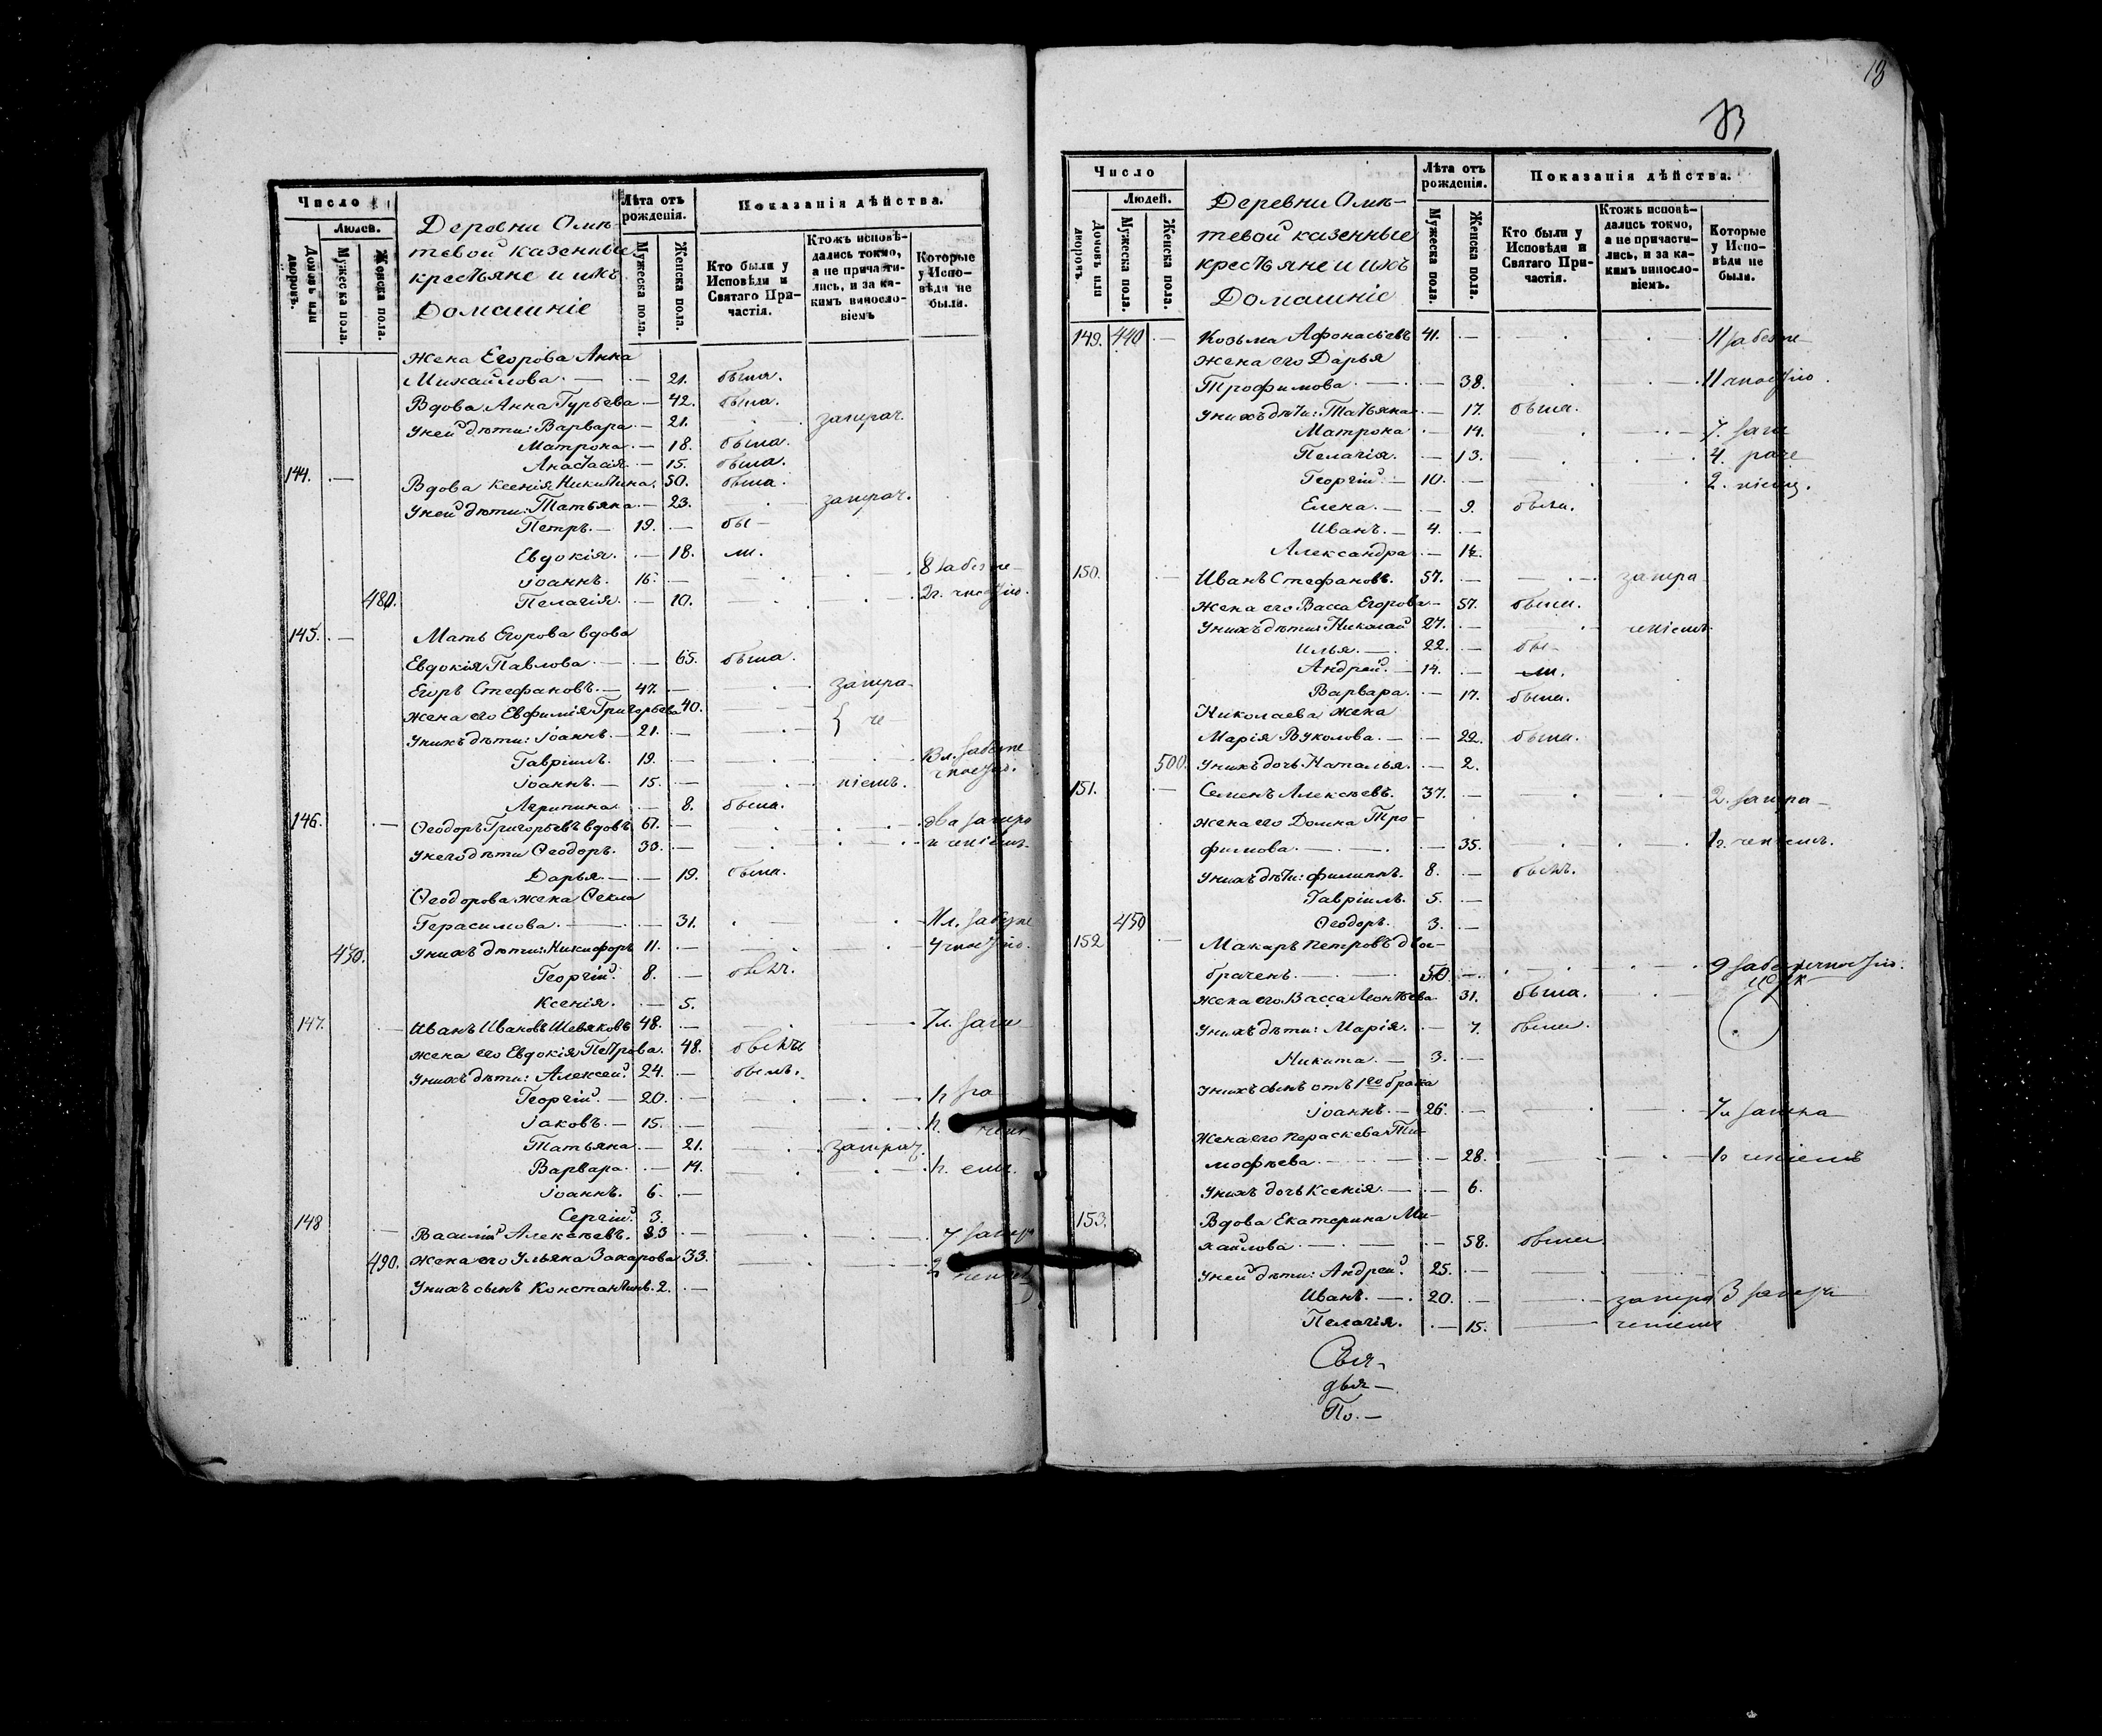 Число
Людей.
Домовъ или дворовъ.
Мужеска пола.
Женска пола.
Деревни Омѣ-
тевой казенные
крестьяне и ихъ
Домашніе
Лѣта отъ рожденія.
Мужеска пола.
Женска пола.
Показанія дѣйства.
Кто были у Исповѣди и Святаго При-частія.
Ктожъ исповѣ-дались токмо, а не причасти-лись, и за ка-кимъ виносло-віемъ
Которые у Испо-вѣди не были.
Жена Егорова Анна
Михайлова. — — 21. была.
Вдова Анна Гурьева — 42. была.
У ней дѣти: Варвара — 21. запрач.
Матрона — 18. была.
Анастасія — 15. была.
144. — Вдова Ксенія Никитина. 50. была.
У ней дѣти: Татьяна — 23. запрач.
Петръ. — 19. — бы-
Евдокія. — 18. ли.
Іоаннъ. 16. —
480. Пелагія. — 10.
145. — Мать Егорова вдова
Евдокія Павлова — — 65. была.
Егоръ Стефановъ. — 47. — запра-
Жена его Евфимія Григорьева 40. че
У нихъ дѣти: Іоаннъ. — 21. —
Гавріилъ. 19. —
Іоаннъ. — 15. — ніемъ.
Агрипина — 8. была.
146. — Ѳеодоръ Григорьевъ вдовъ 67. —
У него дѣти Ѳеодоръ. 30. —
Дарья. — — 19. была.
Ѳеодорова жена Ѳекла
Герасимова. — — 31.
430. У нихъ дѣти: Никифоръ 11. —
Георгій. 8. —
Ксенія. — 5.
147. — Иванъ Ивановъ Шевяковъ 48. —
Жена его Евдокія Петрова. 48.
У нихъ дѣти: Алексей. 24. — былъ.
Георгій. — 20. —
Іаковъ. — 15. —
Татьяна — 21. запрач.
Варвара. — 14.
Іоаннъ. 6. —
Сергій. 3.
148 — Василій Алексѣевъ. 33 —
490. Жена его Ульяна Захарова 33.
У нихъ сынъ Константинъ. 2. —
13
Число
Людей.
Домовъ или дворовъ.
Мужеска пола.
Женска пола.
Деревни Омѣ-
тевой казенные
крестьяне и ихъ
Домашніе
Лѣта отъ рожденія.
Мужеска пола.
Женска пола.
Показанія дѣйства.
Кто были у Исповѣди и Святаго При-частія.
Ктожъ исповѣ-дались токмо, а не причасти-лись, и за ка-кимъ виносло-віемъ.
Которые у Испо-вѣди не были.
149. 440 — Козьма Афонасьевъ 41. —
Жена его Дарья
Трофимова. — — 38.
У нихъ дѣти: Татьяна — 17. была.
Матрона — 14.
Пелагія. — 13.
Георгій. — 10. —
Елена. — — 9. были.
Иванъ. — 4. —
Александра — 12.
150. — Иванъ Стефановъ. 57. — запра
Жена его Васса Егорова — 57. были.
У нихъ дѣти: Николай 27. — ченіемъ
Илья. — 22. — бы-
Андрей. — 14. — ли.
Варвара. — 17. была.
Николаева жена
Марія Вуколова. — — 22. была.
500. У нихъ дочь Наталья. — 2.
151. — Семенъ Алексѣевъ. 37. — 2. запра-
Жена его Домна Тро-
фимова. — — 35. ченіемъ.
У нихъ дѣти: Филиппъ. 8. — былъ.
Гавріилъ. 5. —
450 Ѳеодоръ. 3. —
152 — Макаръ Петровъ двое-
брачень. — 50. —
Жена его Васса Леонтьева 31. была.
У нихъ дѣти: Марія. — 7. были.
Никита. — 3. —
У нихъ сынъ отъ 1го брака
Іоаннъ. — 26. —
Жена его Параскева Ти-
мофѣева. — — 28.
У нихъ дочь Ксенія. — — 6.
153. Вдова Екатерина Ми-
хайлова — — 58. были
У ней дѣти: Андрей. 25. —
Иванъ. — 20. — запра
Пелагія. — 15. ченіемъ
Свя-
дья-
По.-